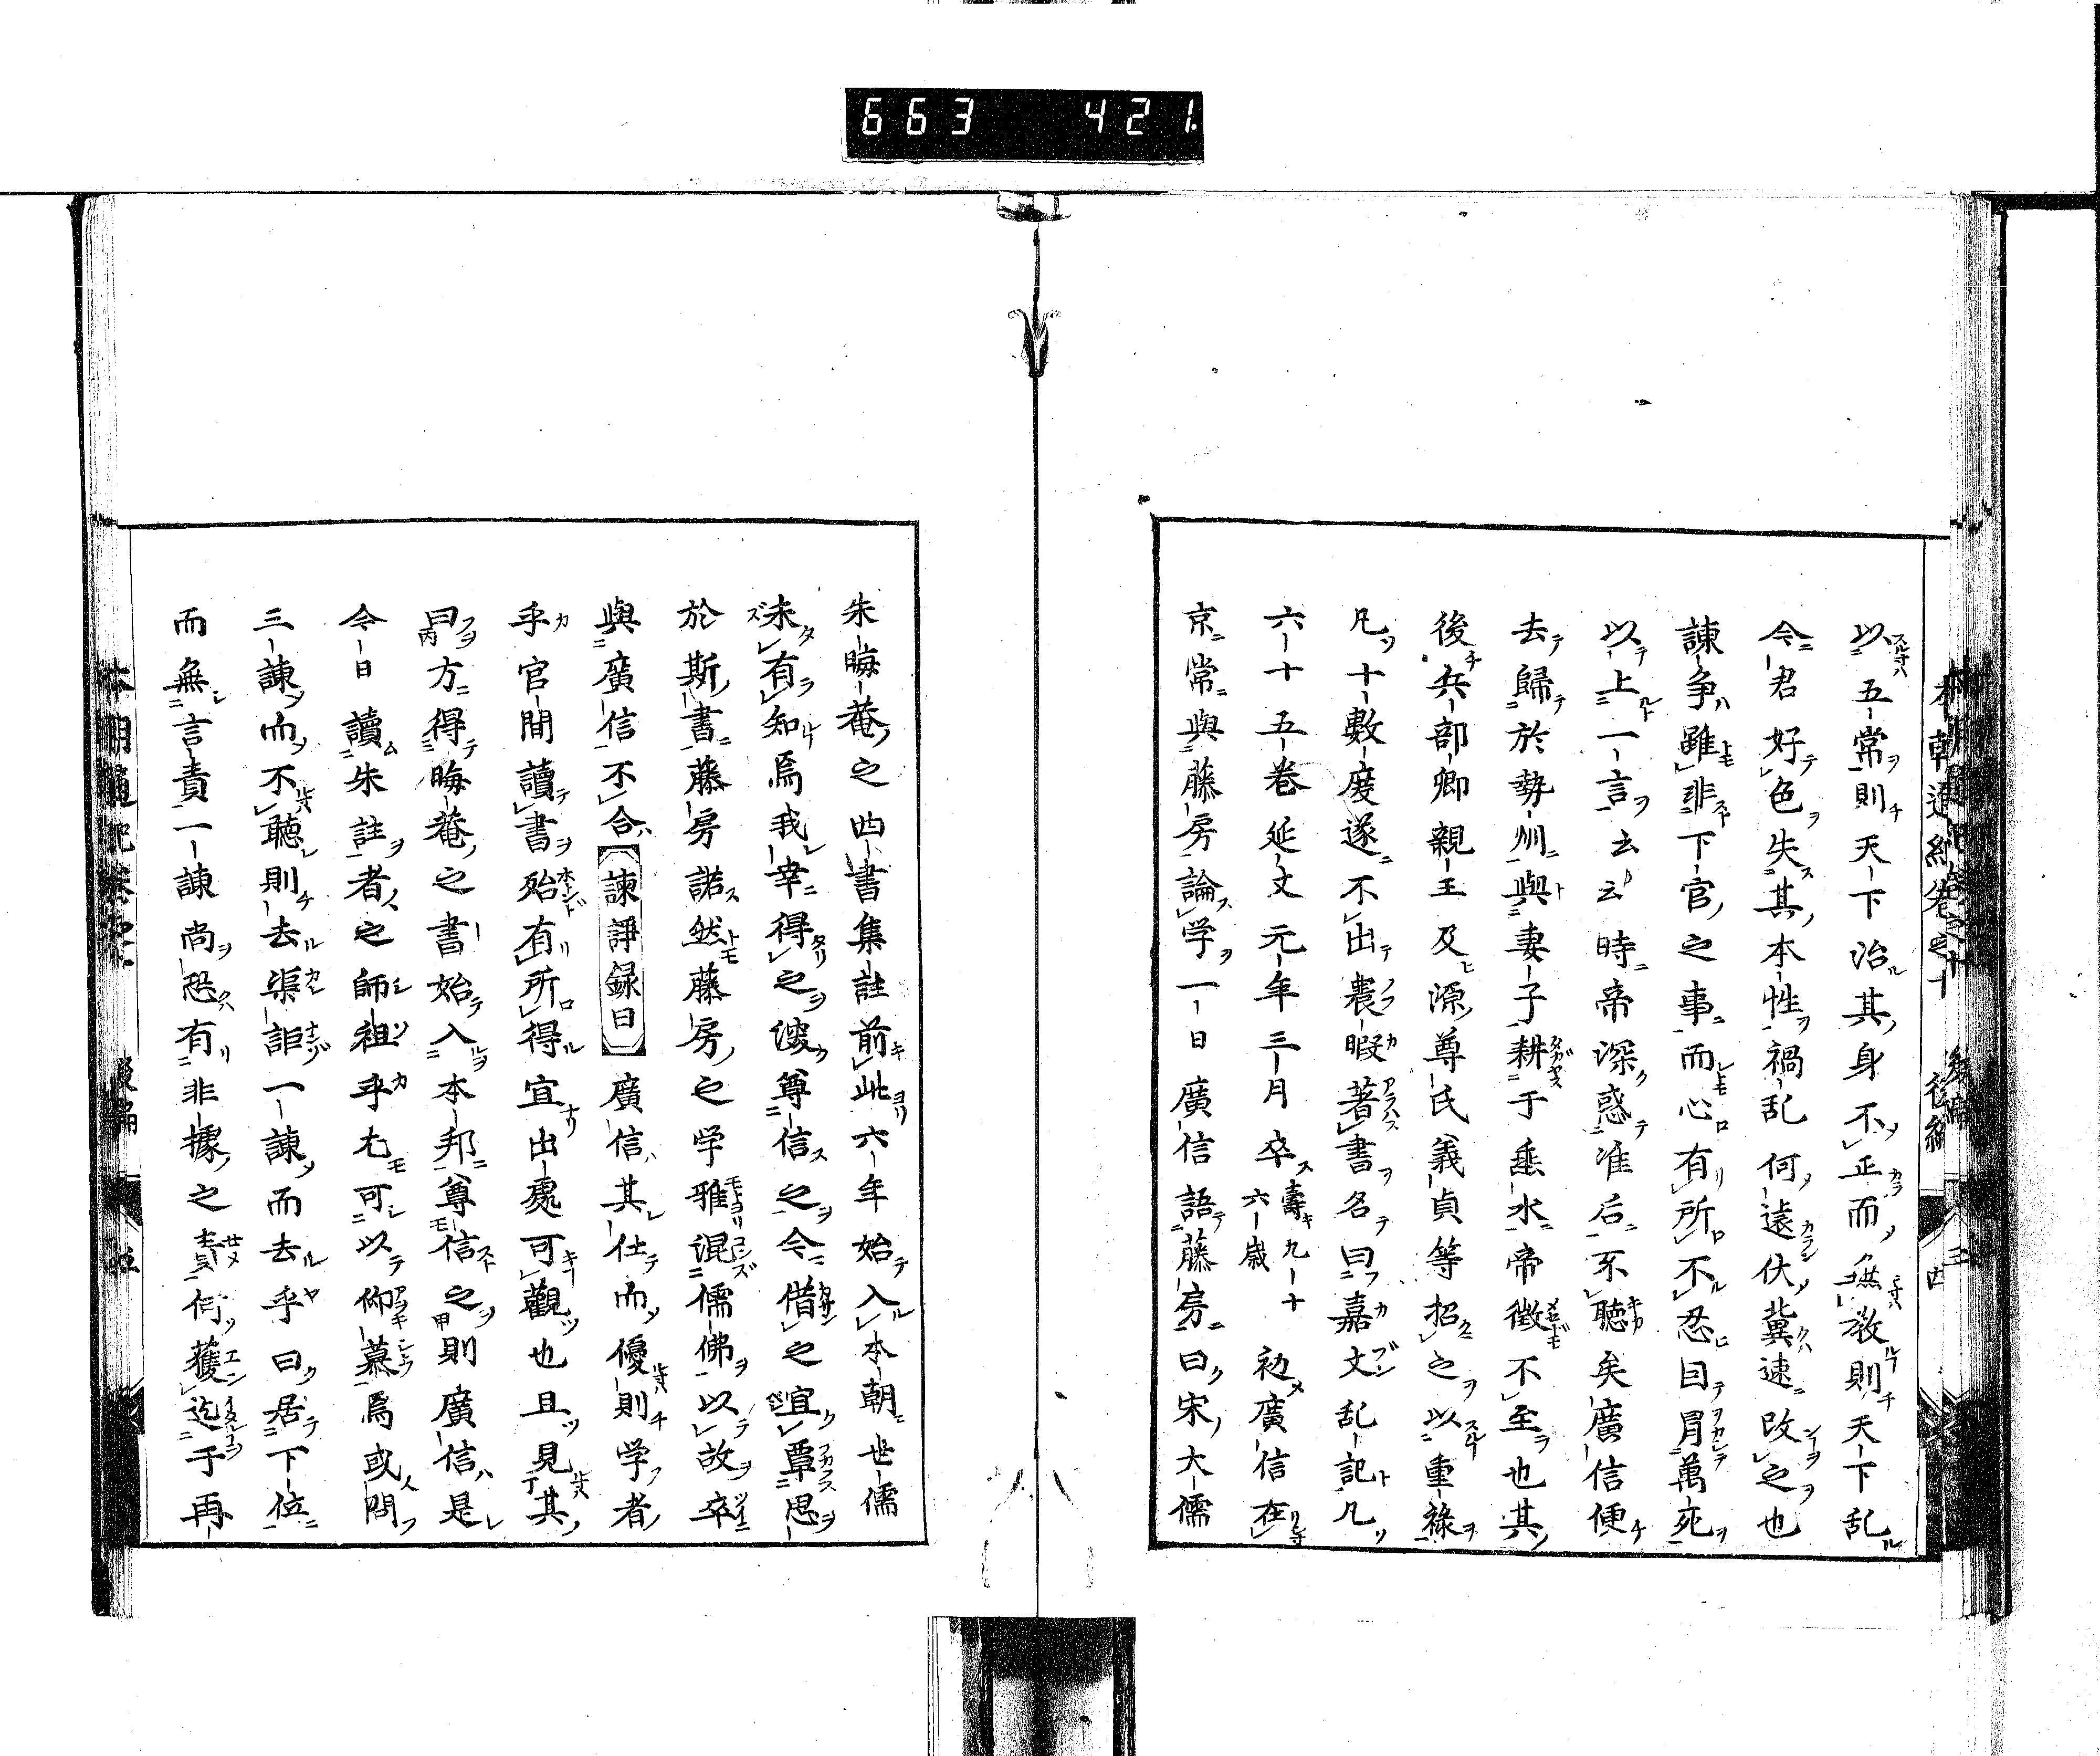 663 421
以五常則天下治其身不正而無教則天下乱
今君好色失其本性禍乱何遠伏冀速改之也
諌争雖非下官之事而心有所不忍目冐萬死
以上一言云云時帝深惑准后不聴矣廣信便
去歸於勢州與妻子耕于垂水帝徴不至也其
後兵部卿親王及源尊氏義貞等招之以重祿
凡十數度遂不出農暇著書名曰嘉文乱記凡
六十五巻延文元年三月卒壽九十六歳初廣信在
京常與藤房論学一日廣信語藤房曰宋大儒
朱晦菴之四書集註前此六年始入本朝世儒
未有知焉我幸得之深尊信之今借之宜覃思
於斯書藤房諾然藤房之学雅混儒佛以故卒
與廣信不合諫諍録曰廣信其仕而優則学者
乎官間讀書殆有所得宜出處可觀也且見其
曰方得晦菴之書始入本邦尊信之則廣信是
今日讀朱註者之師祖乎尤可以仰慕焉或問
三諌而不聴則去渠詎一諌而去乎曰居下位
而無言責一諌尚恐有非據之責何獲迄于再